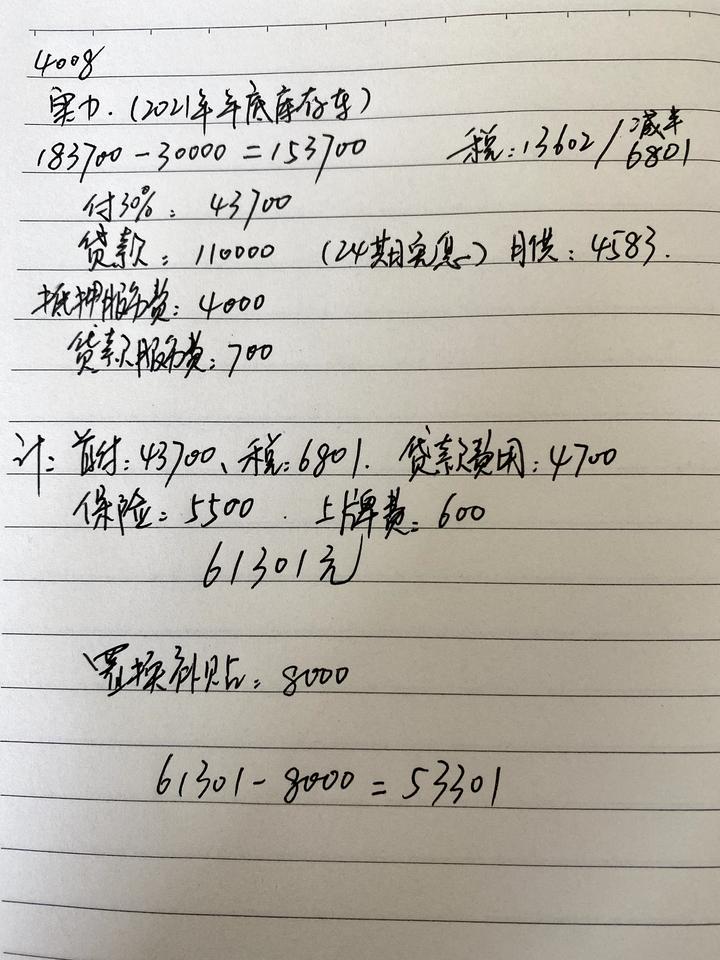 4008
实力.(2021年年底库存车)
183700-30000=153700 税:13602/减半6801
付30%: 43700
贷款: 110000 (24期免息) 月供: 4583.
抵押服务费: 4000
贷款服务费: 700
计: 首付: 43700、税: 6801. 贷款费用: 4700
保险: 5500 . 上牌费: 600
61301元
置换补贴: 8000
61301-8000=53301